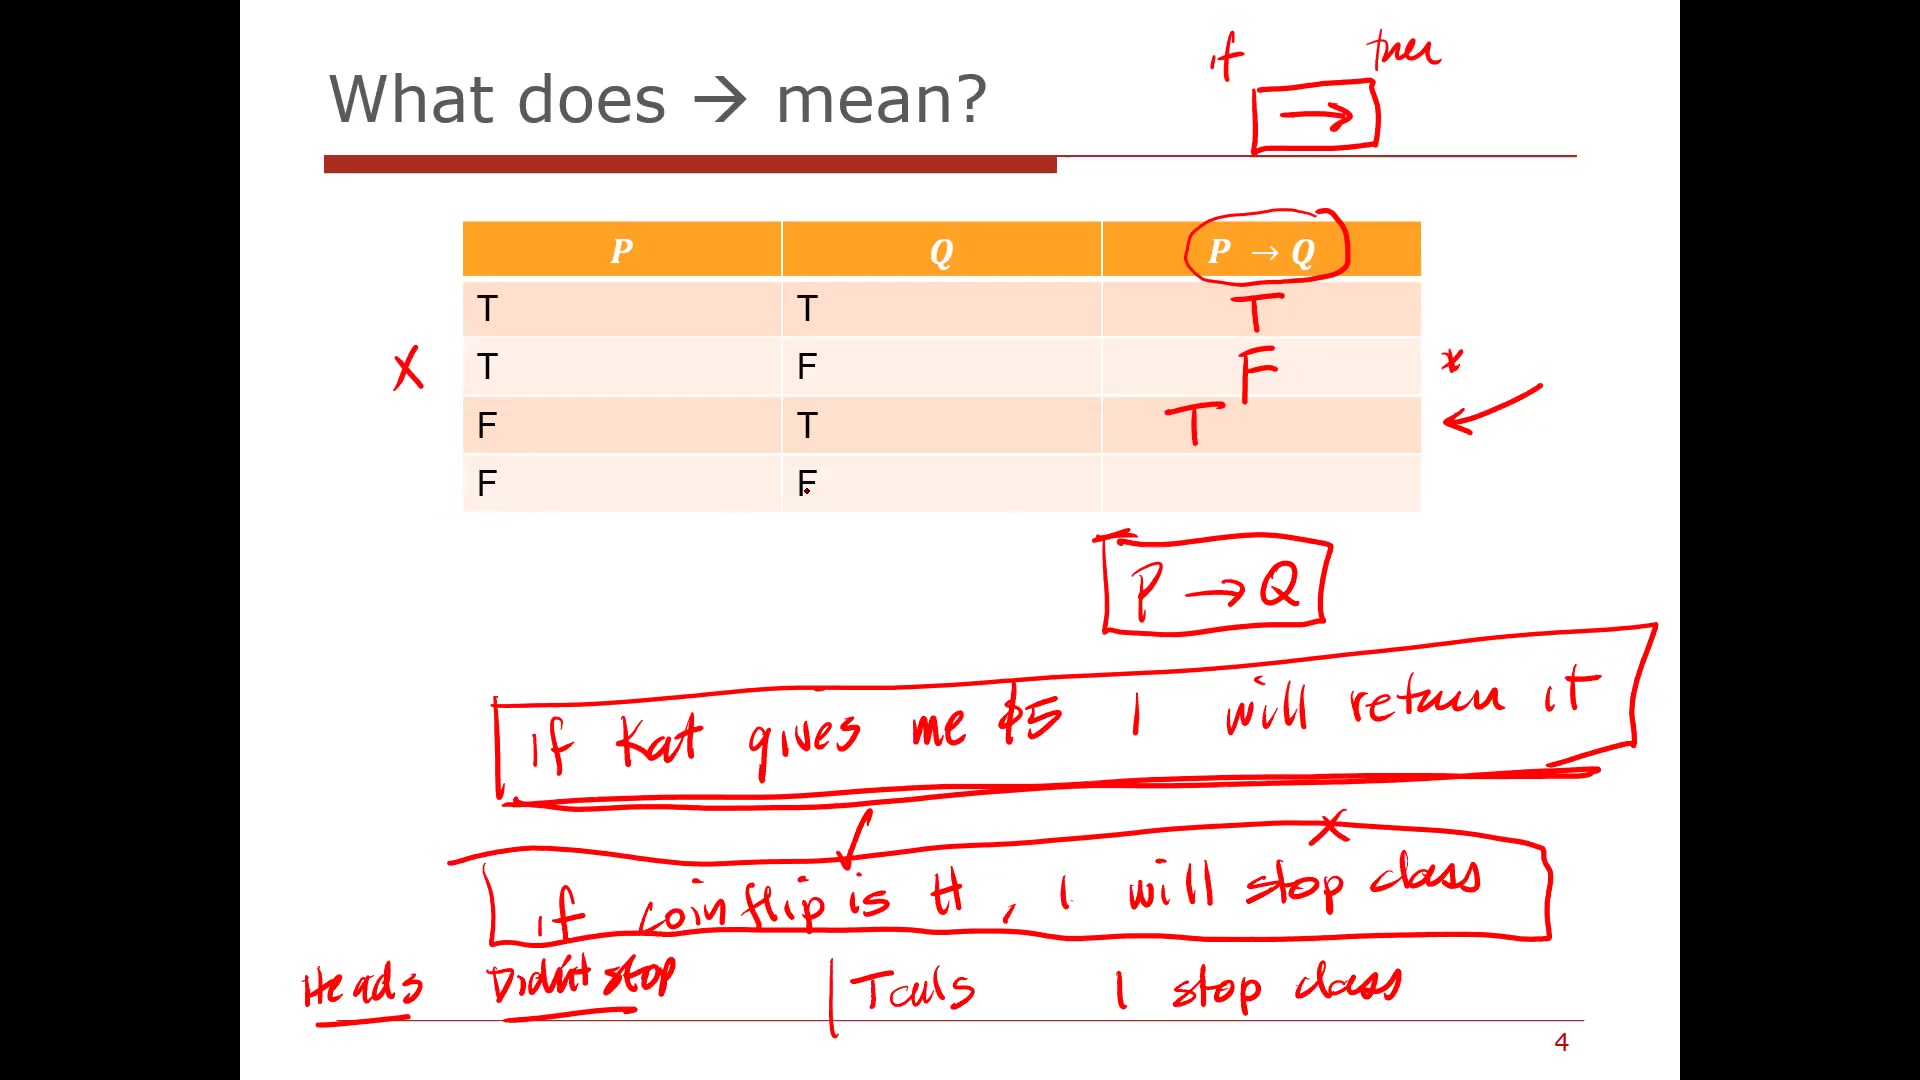 if then
What does → mean?
→
P Q P → Q
T T T
X T F F x
F T T
F F
P → Q
if Kat gives me $5 I will return it
if coin flip is H, I will stop class
Heads Didn't stop | Tails I stop class
4